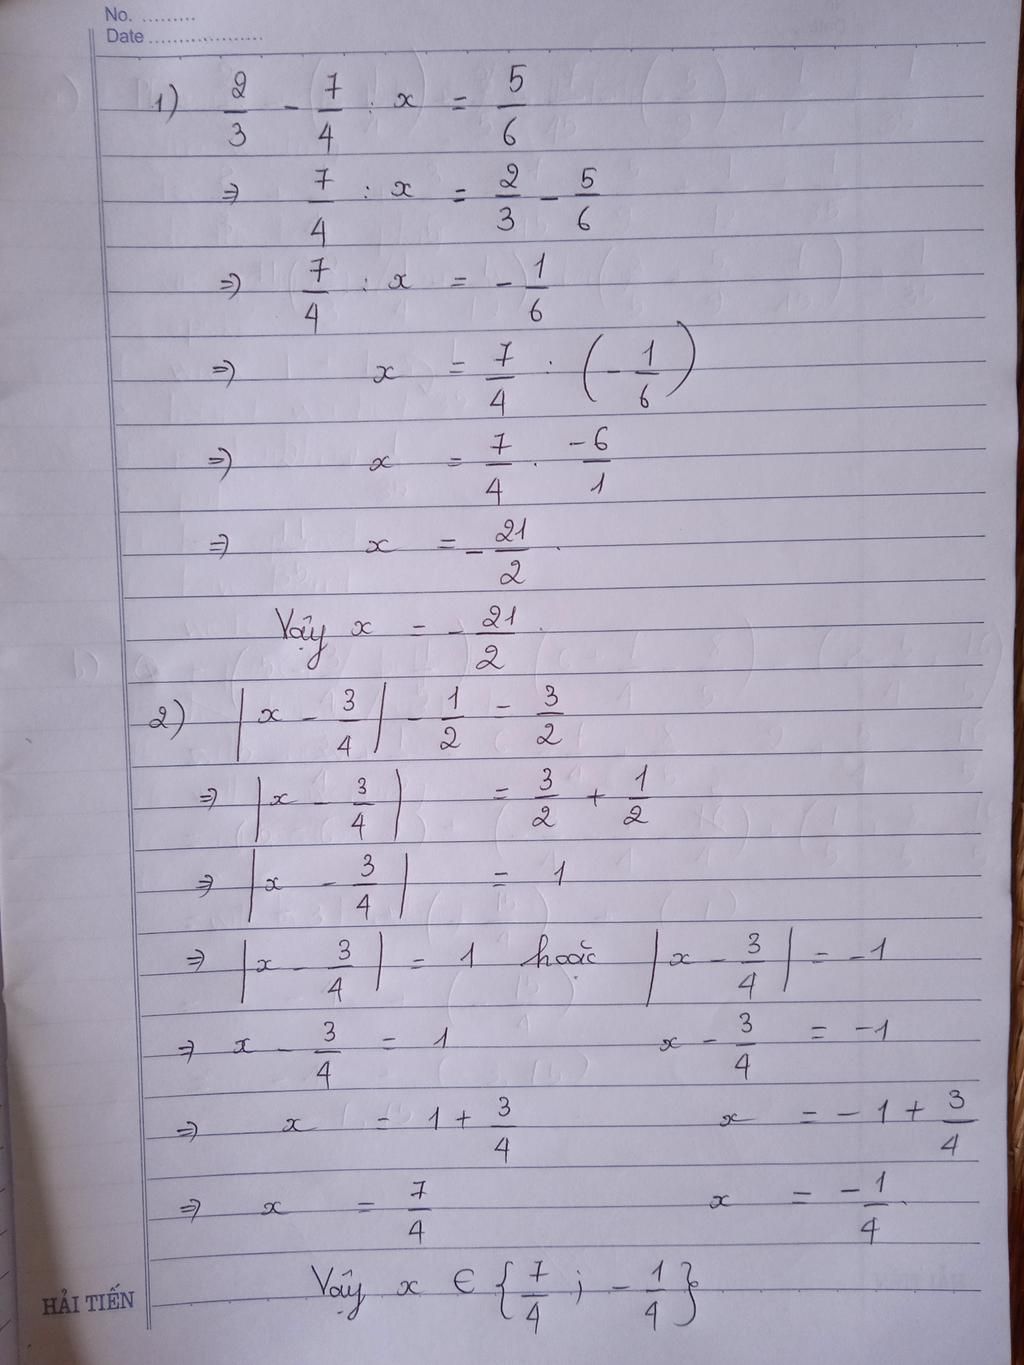 No. .........
Date ...................
1) 2/3 - 7/4 : x = 5/6
⇒ 7/4 : x = 2/3 - 5/6
⇒ 7/4 : x = - 1/6
⇒ x = 7/4 : (- 1/6)
⇒ x = 7/4 . -6/1
⇒ x = - 21/2 .
Vậy x = - 21/2 .
2) |x - 3/4| - 1/2 = 3/2
⇒ |x - 3/4| = 3/2 + 1/2
⇒ |x - 3/4| = 1
⇒ |x - 3/4| = 1 hoặc |x - 3/4| = -1
⇒ x - 3/4 = 1 x - 3/4 = -1
⇒ x = 1 + 3/4 x = -1 + 3/4
⇒ x = 7/4 x = -1/4 .
Vậy x ∈ {7/4 ; - 1/4}
HẢI TIẾN